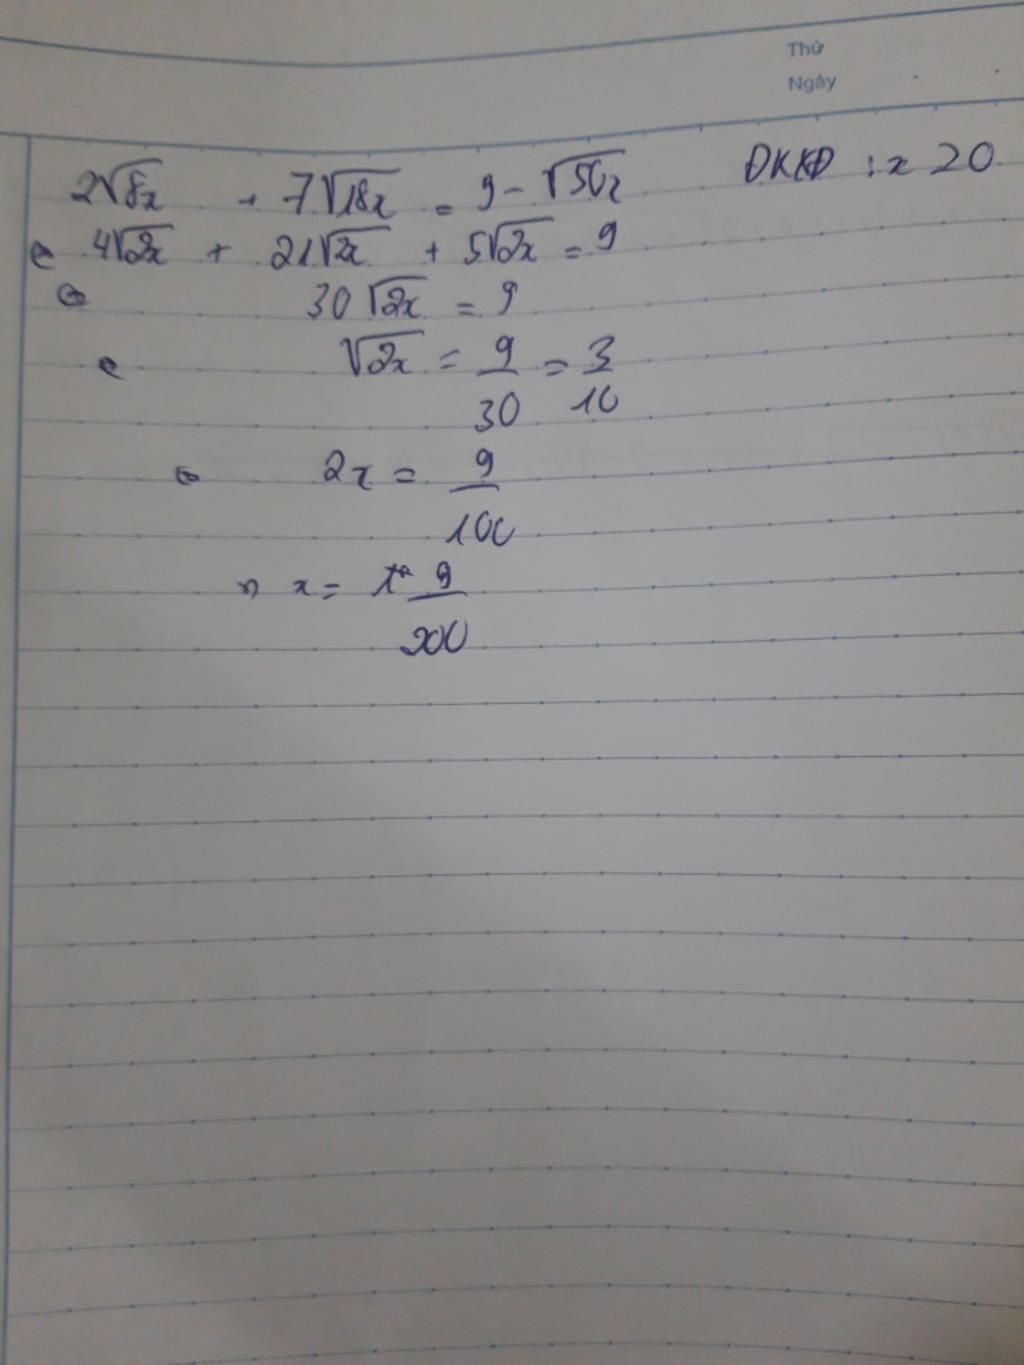 Thứ
Ngày
2√8x + 7√18x = 9 - √50x ĐKXĐ : x ≥ 0
⇔ 4√2x + 21√2x + 5√2x = 9
⇔ 30√2x = 9
⇔ √2x = 9/30 = 3/10
⇔ 2x = 9/100
x = 9/200